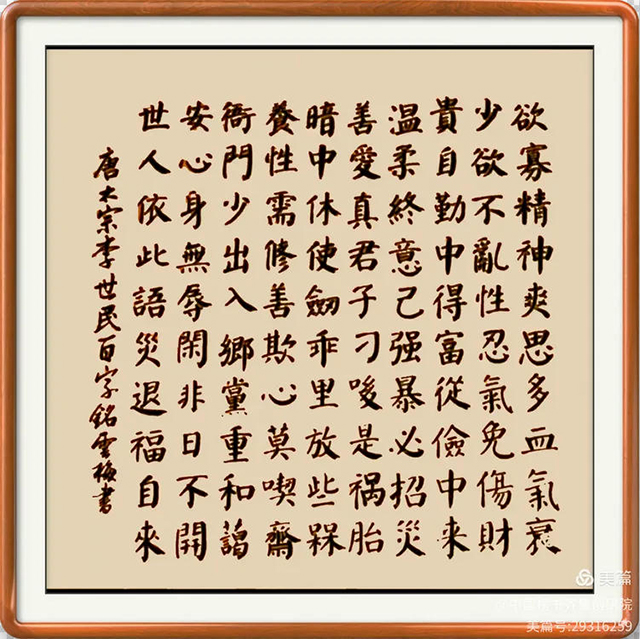 欲寡精神爽思多血氣衰
少欲不亂性忍氣免傷財
貴自勤中得富從儉中来
温柔終意己强暴必招災
善愛真君子刁唆是禍胎
暗中休使劔乖里放些槑
養性需修善欺心莫喫齋
衙門少出入鄉黨重和藹
安心身無辱閑非日不開
世人依此語災退福自来
唐太宗李世民百字銘雲梅書
美篇
美篇号:29316259